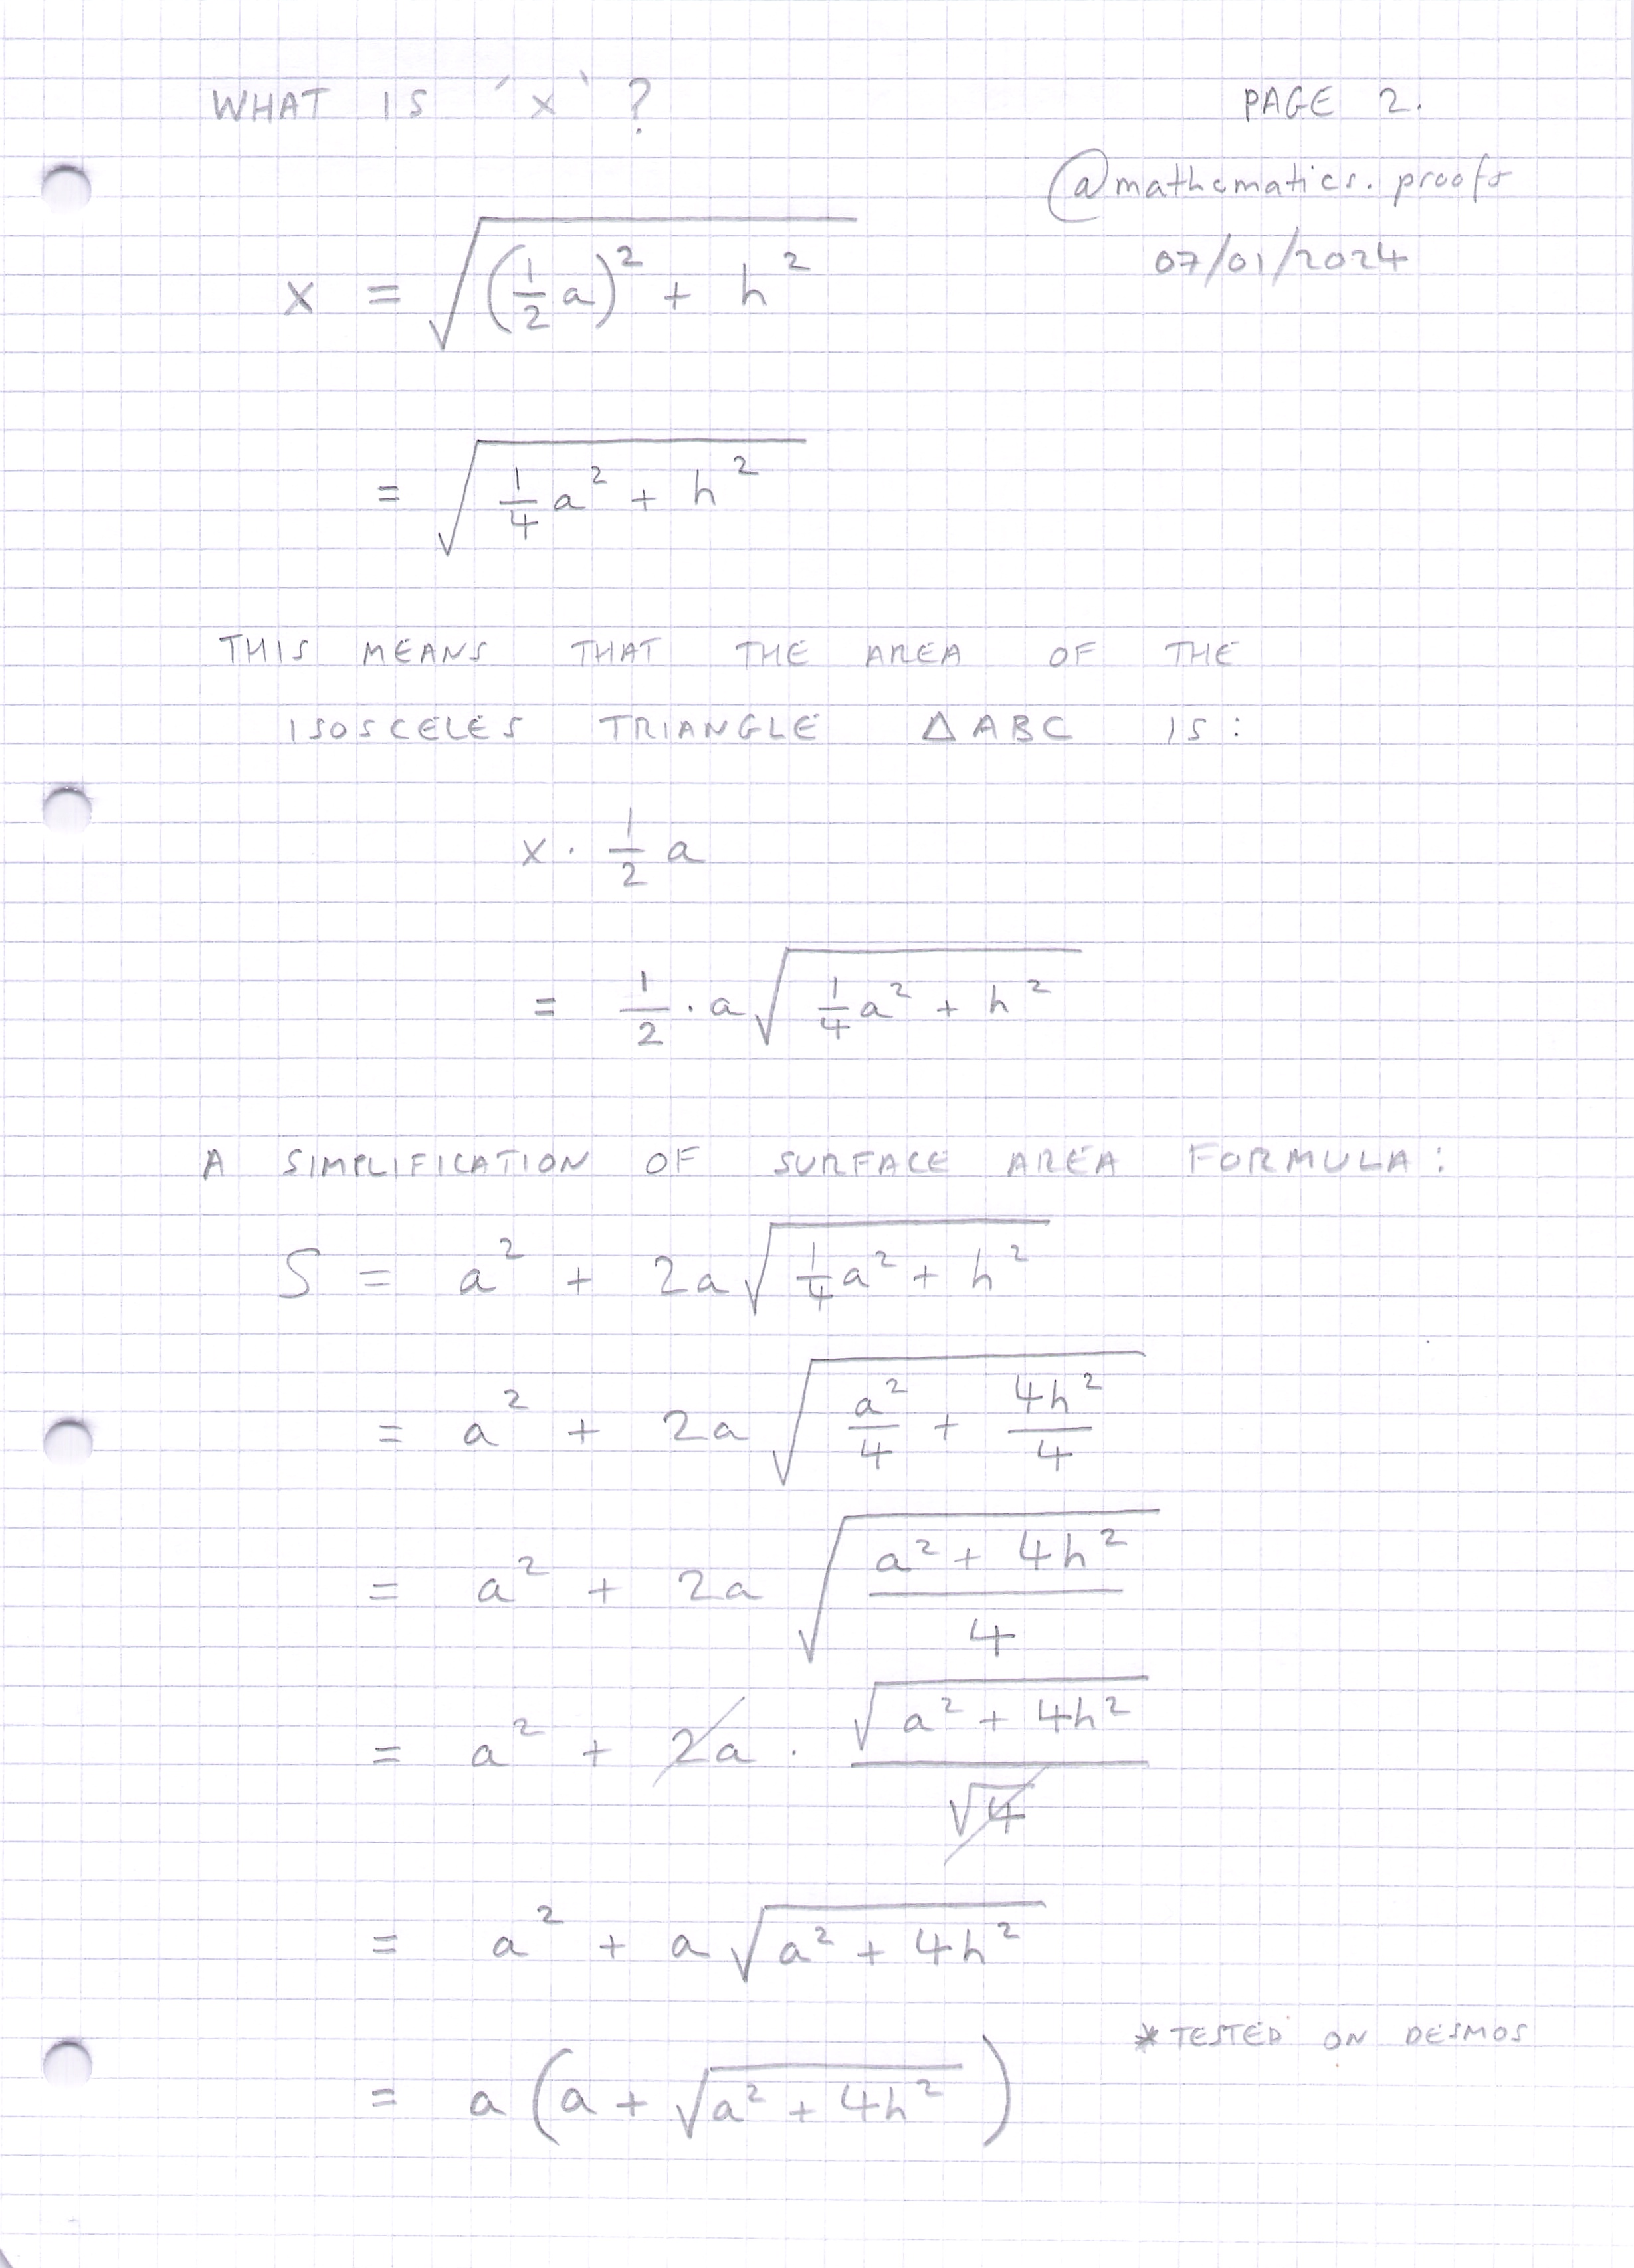 WHAT IS 'x' ?
PAGE 2.
@mathematics.proofs
07/01/2024
x = √((1/2 a)² + h²)
= √(1/4 a² + h²)
THIS MEANS THAT THE AREA OF THE
ISOSCELES TRIANGLE △ABC IS:
x · 1/2 a
= 1/2 · a√(1/4 a² + h²)
A SIMPLIFICATION OF SURFACE AREA FORMULA:
S = a² + 2a√(1/4 a² + h²)
= a² + 2a√(a²/4 + 4h²/4)
= a² + 2a√((a² + 4h²)/4)
= a² + 2a · √(a² + 4h²)/√4
= a² + a√(a² + 4h²)
* TESTED ON DESMOS
= a(a + √(a² + 4h²))